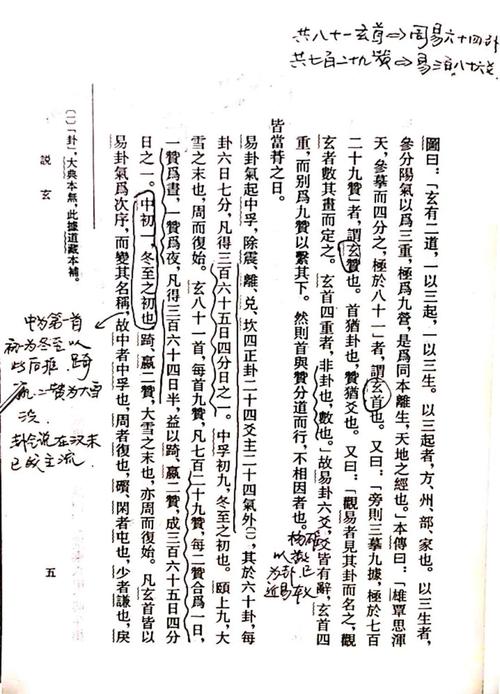 共八十一玄首⇔周易六十四卦
共七百二十九贊⇔易三百八十六爻
圖曰：「玄有二道，一以三起，一以三生。以三起者，方、州、部、家也。以三生者，
參分陽氣以爲三重，極爲九營，是爲同本離生，天地之經也。」本傳曰：「雄覃思渾
天，參摹而四分之，極於八十一」者，謂玄首也。又曰：「旁則三摹九據，極於七百
二十九贊」者，謂玄贊也。首猶卦也，贊猶爻也。又曰：「觀易者見其卦而名之，觀
玄者數其畫而定之。玄首四重者，非卦也，數也。」故易卦六爻，爻皆有辭，玄首四
重，而別爲九贊以繫其下。然則首與贊分道而行，不相因者也。
皆當朞之日。
易卦氣起中孚，除震、離、兌、坎四正卦二十四爻主二十四氣外〔一〕，其於六十卦，每
卦六日七分，凡得三百六十五日四分日之一。中孚初九，冬至之初也。頤上九，大
雪之末也，周而復始。玄八十一首，每首九贊，凡七百二十九贊，每二贊合爲一日，
一贊爲晝，一贊爲夜，凡得三百六十四日半，益以踦、嬴二贊，成三百六十五日四分
日之一。中初一，冬至之初也，踦、嬴二贊，大雪之末也，亦周而復始。凡玄首皆以
易卦氣爲次序，而變其名稱，故中者中孚也，周者復也，礥、閑者屯也，少者謙也，戾
〔一〕「卦」，大典本無，此據道藏本補。
説玄
五
中为第一首
初一为冬至以
此后推，踦
嬴二贊为大雪
末
卦气说在汉末
已成主流
以
为卦
近易